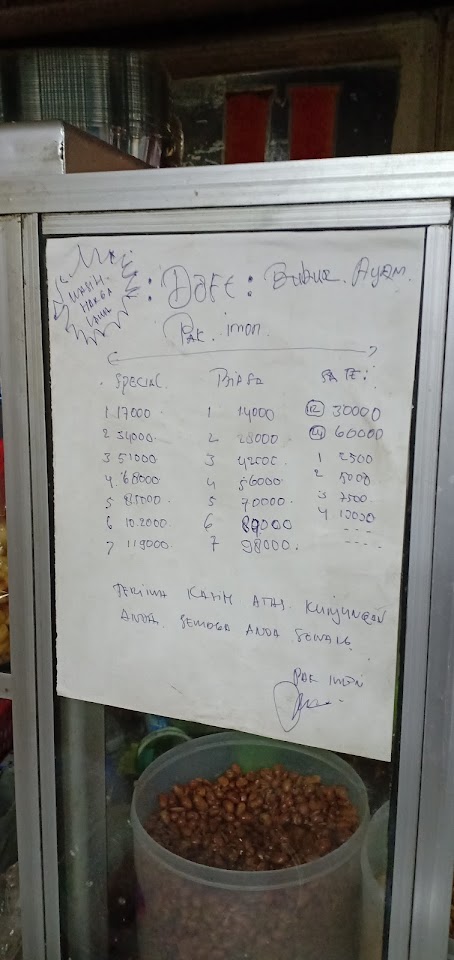 MASIH
HARGA
LAMA
: DAFT : Bubur. Ayam.
PAK. imon.
SPECIAL. BIASA SATE:
1 17000 1 14000 12 30000
2 34000 2 28000 24 60000
3 51000 3 42000. 1 2500
4. 68000 4 56000 2 5000
5 85000. 5 70000 3 7500
6 10.2000 6 84000 4 10000
7 119000 7 98000.
TERIMA KASIH ATAS. KUNJUNGAN
ANDA. SEMOGA ANDA SENANG
PAK IMON